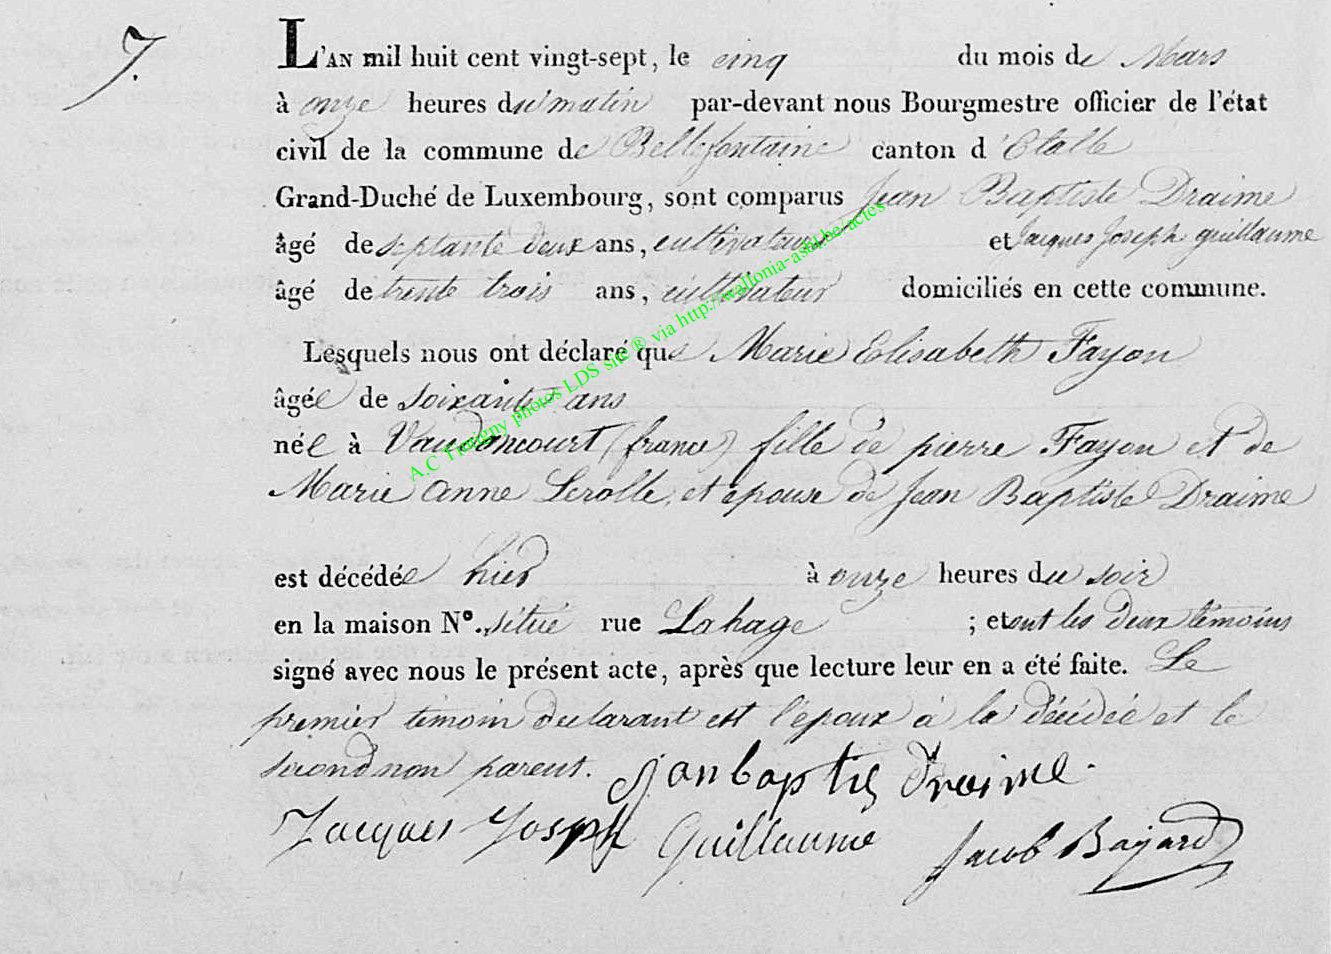 7.
L'AN mil huit cent vingt-sept, le cinq du mois de Mars
à onze heures du matin par-devant nous Bourgmestre officier de l'état
civil de la commune de Bellefontaine canton d'Etalle
Grand-Duché de Luxembourg, sont comparus Jean Baptiste Draime
âgé de septante deux ans, cultivateur et Jacques Joseph guillaume
âgé de trente trois ans, cultivateur domiciliés en cette commune.
Lesquels nous ont déclaré que Marie Elisabeth Fayon
âgée de Soixante ans
née à Vaudoncourt (france) fille de pierre Fayon et de
Marie anne Lerolle, et épouse de Jean Baptiste Draime
est décédée hier à onze heures du soir
en la maison N°. situé rue Lahage ; et ont les deux témoins
signé avec nous le présent acte, après que lecture leur en a été faite. Le
premier témoin declarant est l'époux à la décédée et le
second non parent. Janbaptis Draime.
Jacques Joseph Guillaume Jacob Bayard
A.C Tintigny photos LDS site ® via http://wallonia-asbl.be/actes